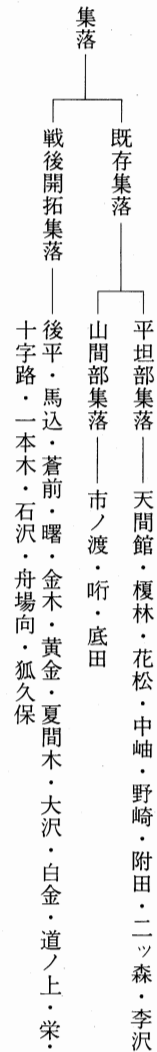 集落
既存集落
平坦部集落
天間館・榎林・花松・中岫・野崎・附田・二ッ森・李沢
山間部集落
市ノ渡・哘・底田
戦後開拓集落
後平・馬込・蒼前・曙・金木・黄金・夏間木・大沢・白金・道ノ上・栄・
十字路・一本木・石沢・舟場向・狐久保